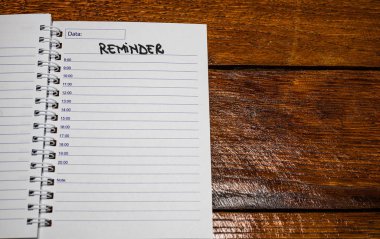 Data:
REMINDER
8:00
9:00
10:00
11:00
12:00
13:00
14:00
15:00
16:00
17:00
18:00
19:00
20:00
Note